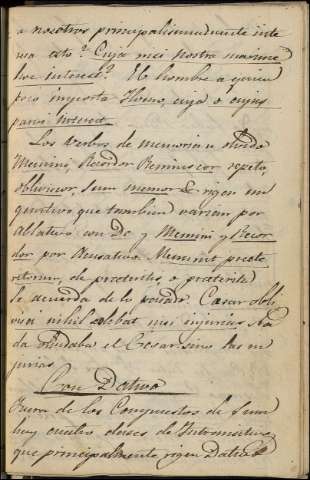 a nosotros principalisimamente inte
resa esto? Cuja mei nostra maxime
hoc interest? El hombre a quien
poco importa Homo, cuja o cujus
parvi interest.
Los verbos de memoria u olvido
Memini, Recordor Reminiscor repeto
obliviscor, Sum memor &c rigen un
genitivo que tambien varian por
Ablativo con De y Memini y Recor
dor por Acusativo. Meminit praete
ritorum, de praeteritis, o praeterita
Se acuerda de lo pasado. Caesar obli
visci nihil solebat nisi injurias Na
da olvidaba el Cesar sino las in
jurias
Con Dativo
Fuera de los Compuestos de Sum
hay cuatro clases de Intransitivos
que principalmente rigen Dativo